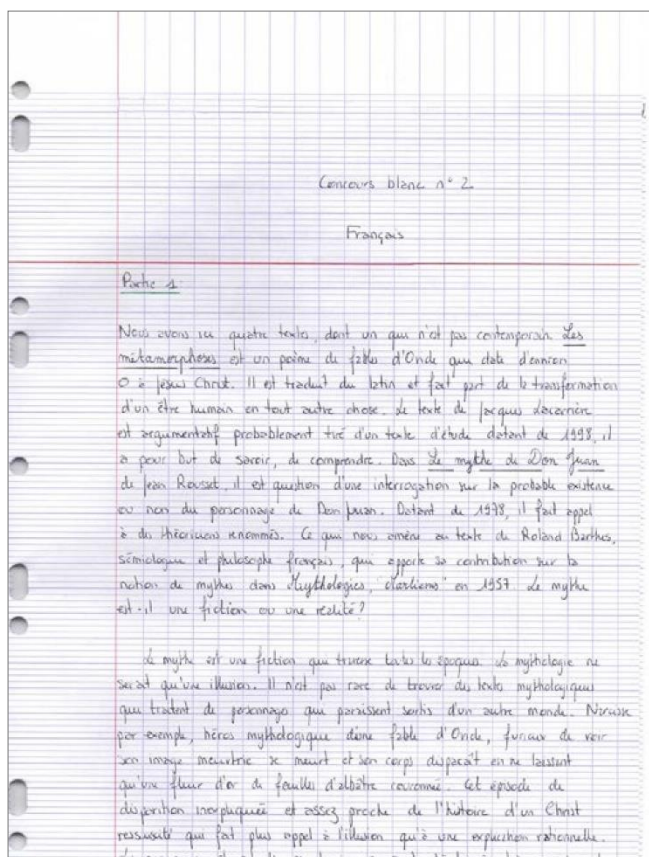 Concours blanc n° 2
Français
Partie 1
Nous avons vu quatre textes, dont un qui n'est pas contemporain. Les
métamorphoses est un poème de fables d'Ovide qui date d'environ
0 à Jésus Christ. Il est traduit du latin et fait part de la transformation
d'un être humain en tout autre chose. Le texte de Jacques Lacarrière
est argumentatif probablement tiré d'un texte d'étude datant de 1998, il
a pour but de savoir, de comprendre. Dans Le mythe de Don Juan
de Jean Rousset, il est question d'une interrogation sur la probable existence
ou non du personnage de Don Juan. Datant de 1978, il fait appel
à des théoriciens renommés. Ce qui nous amène au texte de Roland Barthes,
sémiologue et philosophe français, qui apporte sa contribution sur la
notion de mythes dans Mythologies, en 1957. Le mythe
est-il une fiction ou une réalité?
Le mythe est une fiction qui traverse toutes les époques. La mythologie ne
serait qu'une illusion. Il n'est pas rare de trouver des textes mythologiques
qui traitent de personnages qui paraissent sortis d'un autre monde. Narcisse
par exemple, héros mythologique d'une fable d'Ovide, furieux de voir
son image meurtrie se meurt et son corps disparaît en ne laissant
qu'une fleur d'or de feuilles d'albâtre couronné. Cet épisode de
disparition inexpliquée et assez proche de l'histoire d'un Christ
ressuscité qui fait plus appel à l'illusion qu'à une explication rationnelle.